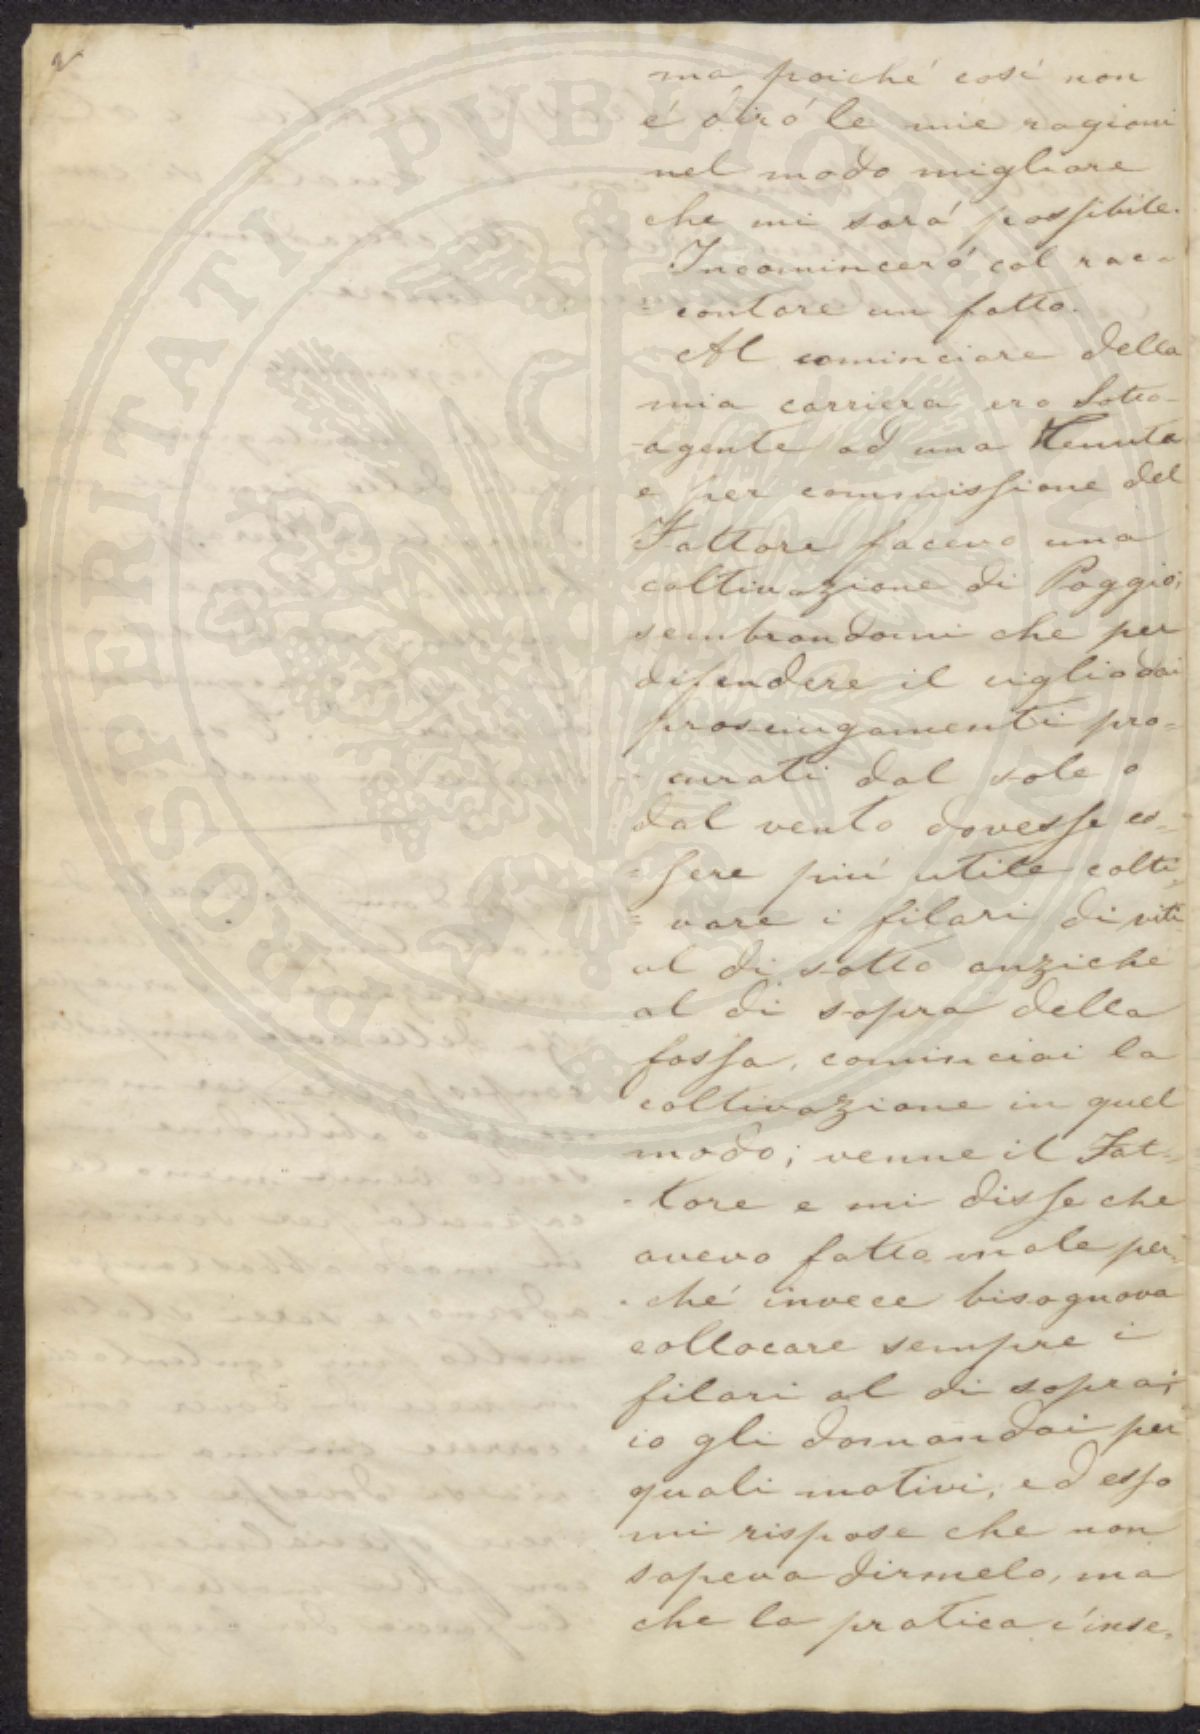 2
ma poiché cosí non
é diró le mie ragioni
nel modo migliore
che mi sará possibile.
Incominceró col rac=
=contare un fatto.
Al cominciare della
mia carriera ero Sotto=
=agente ad una Tenuta
e per commissione del
Fattore facevo una
coltivazione di Poggio;
sembrandomi che per
difendere il ciglio dai
prosciugamenti pro=
=curati dal sole o
dal vento dovesse es=
=sere piú utile colti=
=vare i filari di viti
al di sotto anziché
al di sopra della
fossa, cominciai la
coltivazione in quel
modo; venne il Fat=
=tore e mi disse che
avevo fatto male per=
=ché invece bisognava
collocare sempre i
filari al di sopra;
io gli domandai per
quali motivi, ed esso
mi rispose che non
sapeva dirmelo, ma
che la pratica c'inse=
PROSPERITATI PUBLICAE AUGENDAE